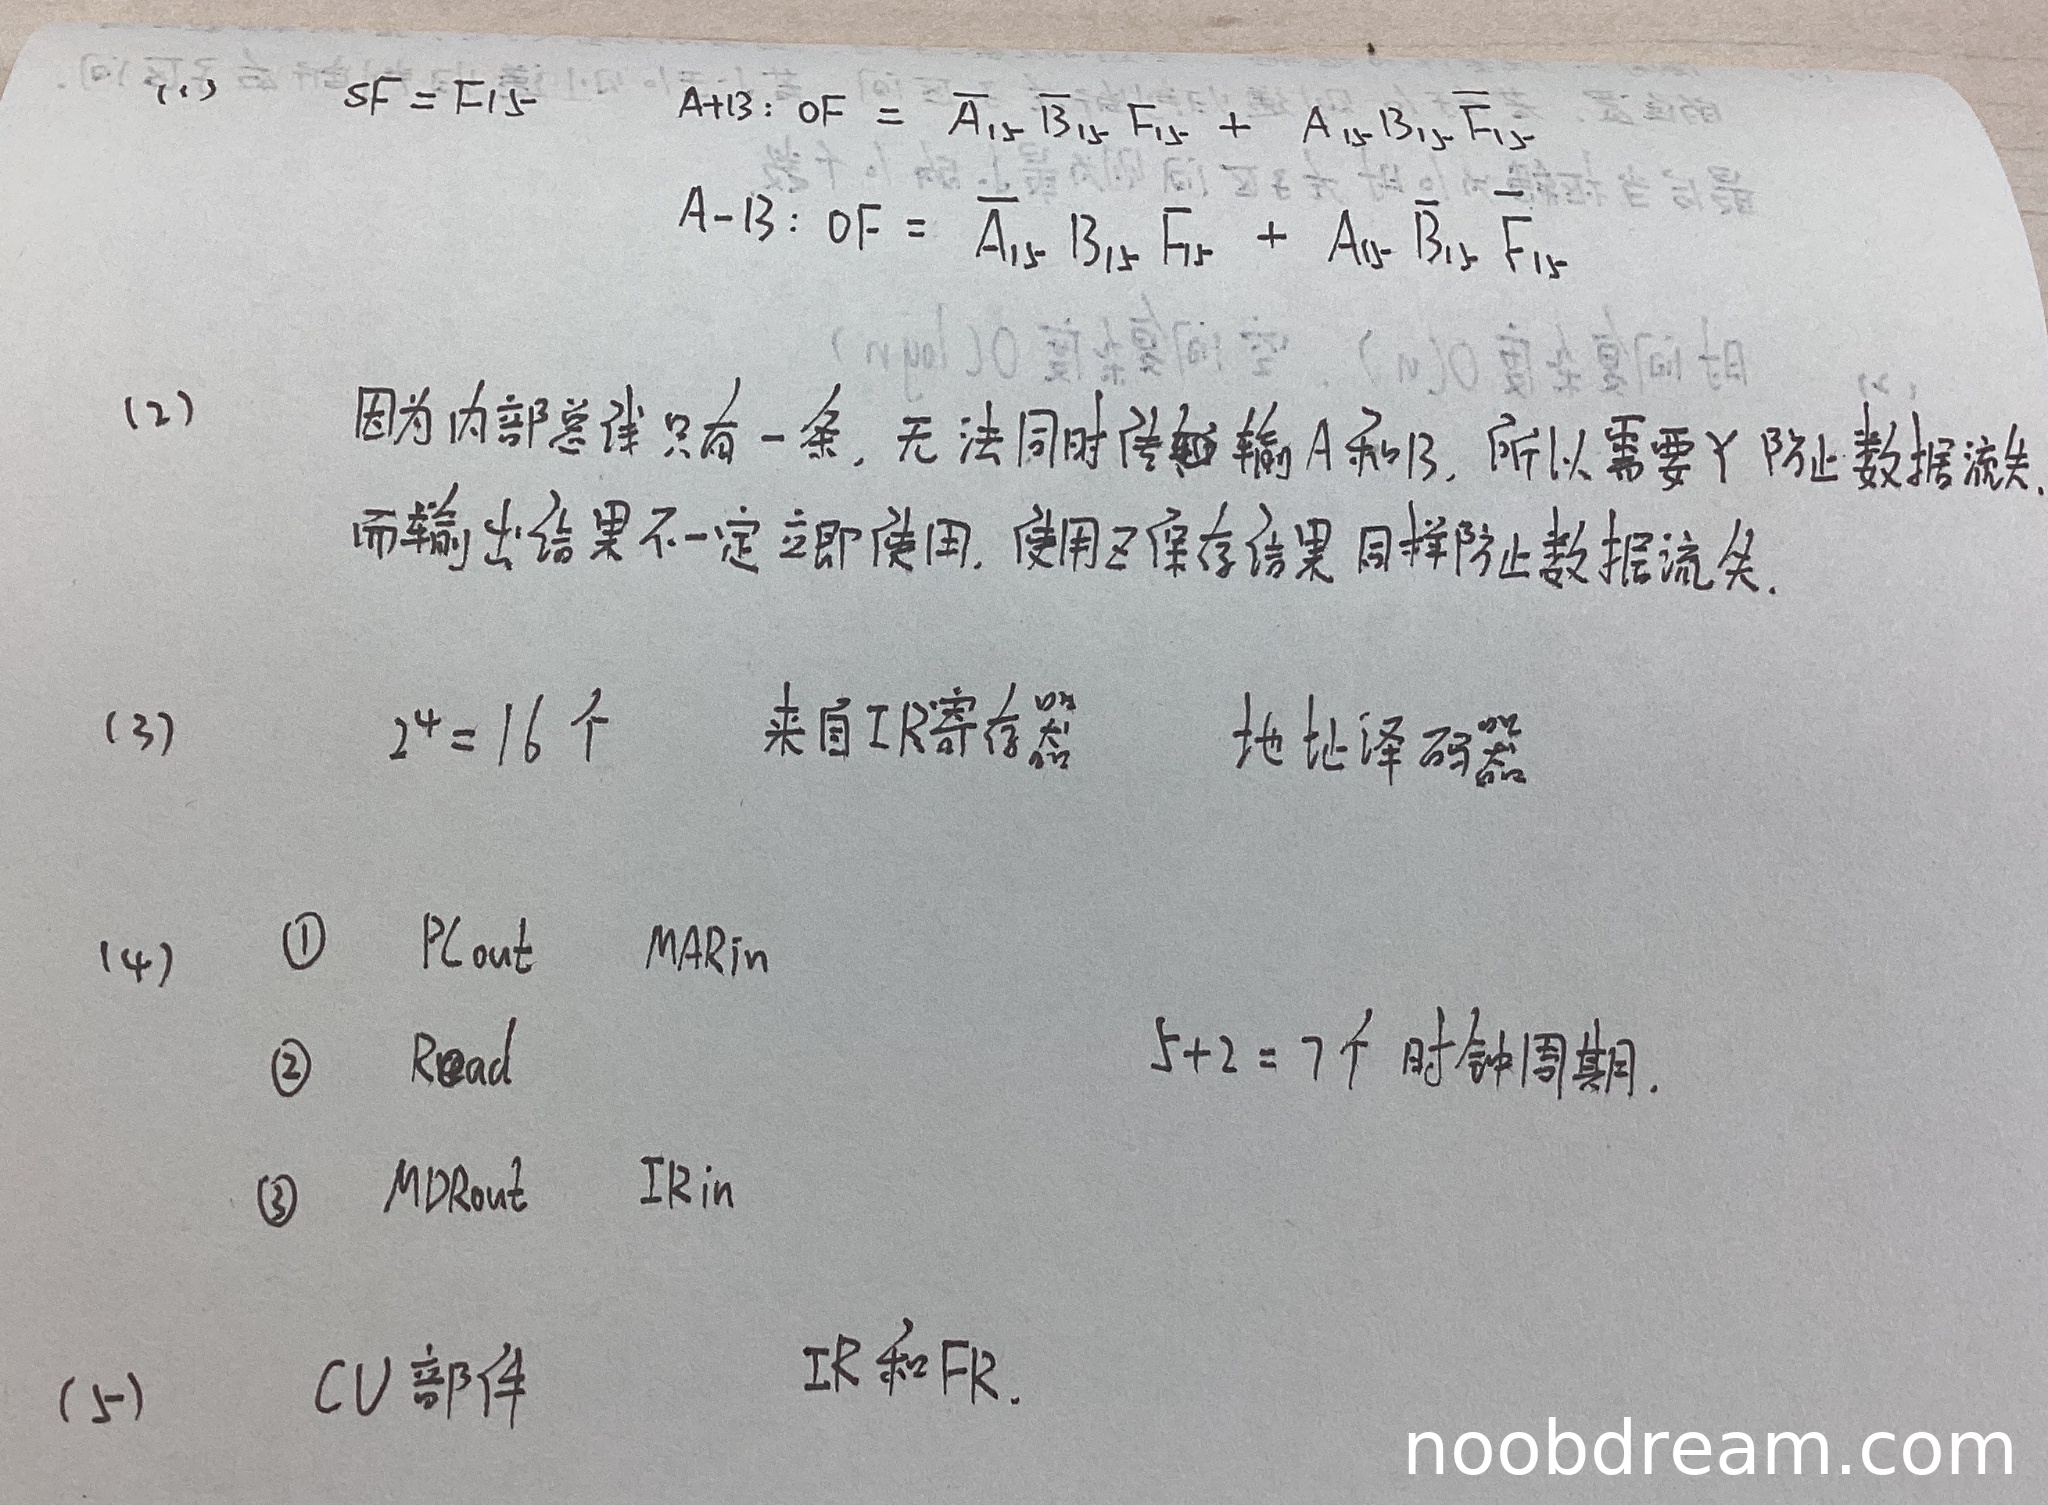 (1) SF = F₁₅ A+B: OF = A̅₁₅ B̅₁₅ F₁₅ + A₁₅ B₁₅ F̅₁₅
A-B: OF = A̅₁₅ B₁₅ F₁₅ + A₁₅ B̅₁₅ F̅₁₅
时间复杂度 O(n). 空间复杂度 O(logn)
(2) 因为内部总线只有一条, 无法同时传输A和B, 所以需要Y防止数据流失.
而输出结果不一定立即使用. 使用Z保存结果同样防止数据流失.
(3) 2⁴ = 16个 来自IR寄存器 地址译码器
(4) ① PCout MARin
② Read 5+2 = 7个时钟周期.
③ MDRout IRin
(5) CU部件 IR和FR.
noobdream.com